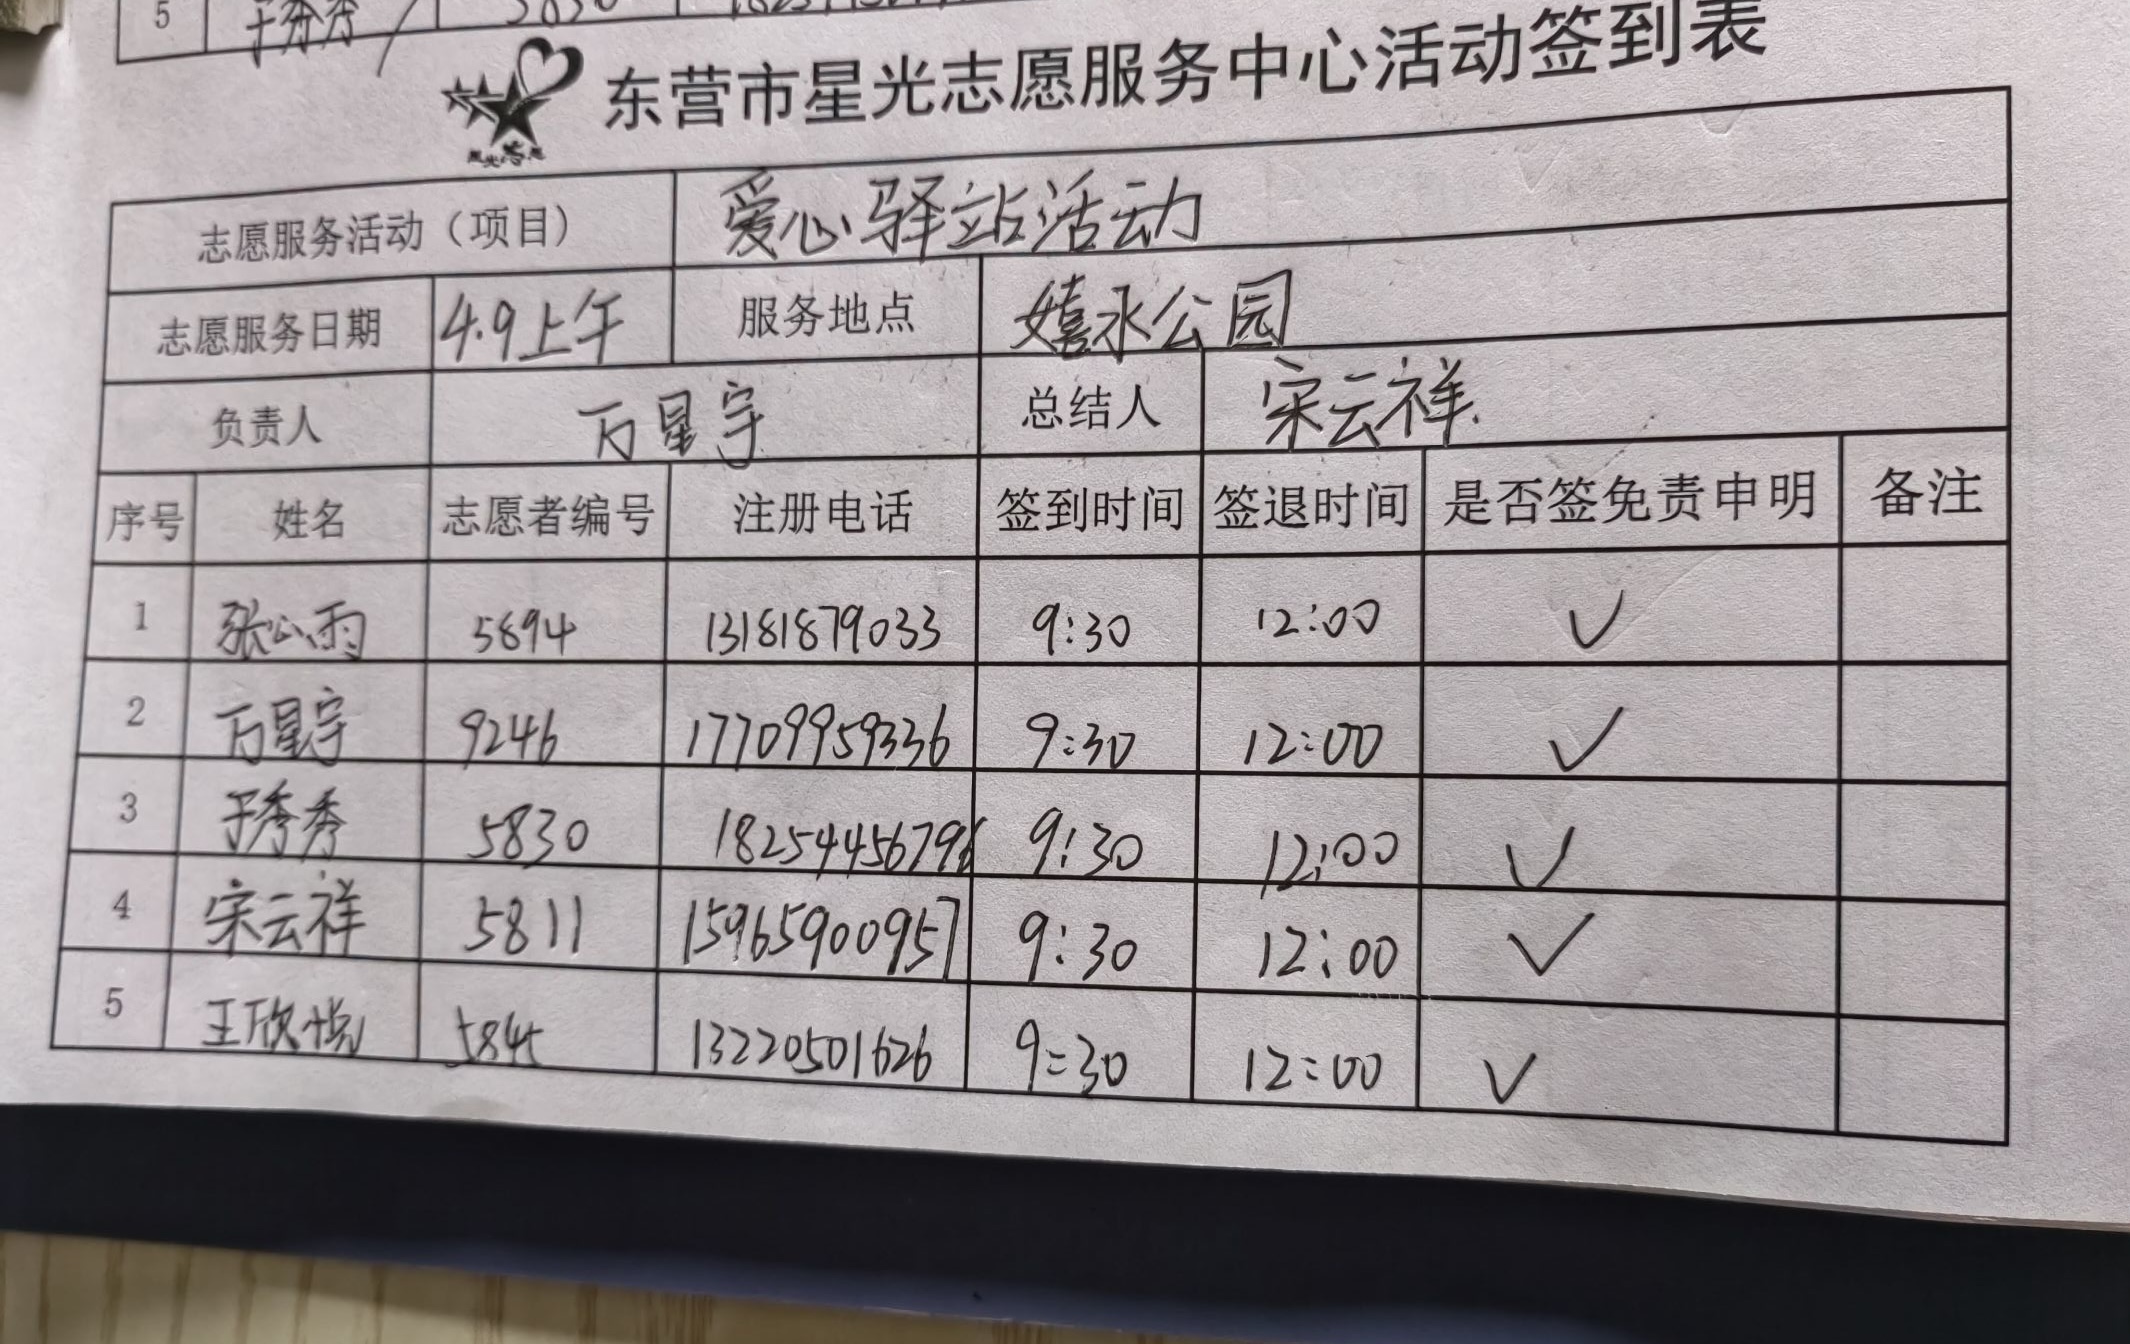 5 于秀秀 5830
东营市星光志愿服务中心活动签到表
星光志愿
志愿服务活动（项目） 爱心驿站活动
志愿服务日期 4.9上午 服务地点 嬉水公园
负责人 万星宇 总结人 宋云祥.
序号 姓名 志愿者编号 注册电话 签到时间 签退时间 是否签免责申明 备注
1 张心雨 5894 13181879033 9:30 12:00 ✓
2 万星宇 9246 17709959336 9:30 12:00 ✓
3 于秀秀 5830 18254456796 9:30 12:00 ✓
4 宋云祥 5811 15965900957 9:30 12:00 ✓
5 王欣悦 5845 13220501626 9:30 12:00 ✓